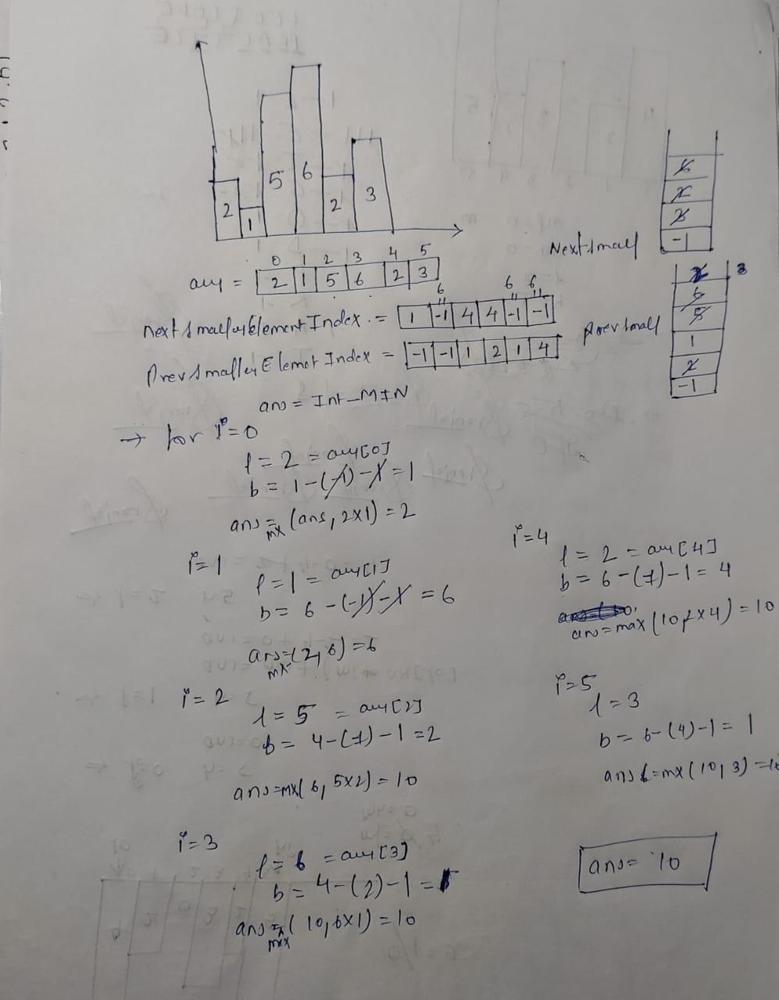 2 1 5 6 2 3
0 1 2 3 4 5
arr = 2 1 5 6 2 3
6 6 6
next smaller Element Index = 1 -1 4 4 -1 -1
prev smaller Elemet Index = -1 -1 1 2 1 4
Next small
-1
prev small
2 3
6
5
1
2
-1
ans = Int_MIN
→ for i=0
l = 2 = arr[0]
b = 1-(-1)-1 = 1
ans = mx (ans, 2x1) = 2
i=1
l = 1 = arr[1]
b = 6-(-1)-1 = 6
ans = mx (2, 6) = 6
i=2
l = 5 = arr[2]
b = 4-(1)-1 = 2
ans = mx(6, 5x2) = 10
i=3
l = 6 = arr[3]
b = 4-(2)-1 = 1
ans = max (10, 6x1) = 10
i=4
l = 2 = arr[4]
b = 6-(1)-1 = 4
ans = max (10, 2x4) = 10
i=5
l = 3
b = 6-(4)-1 = 1
ans = mx (10, 3) = 10
ans = 10